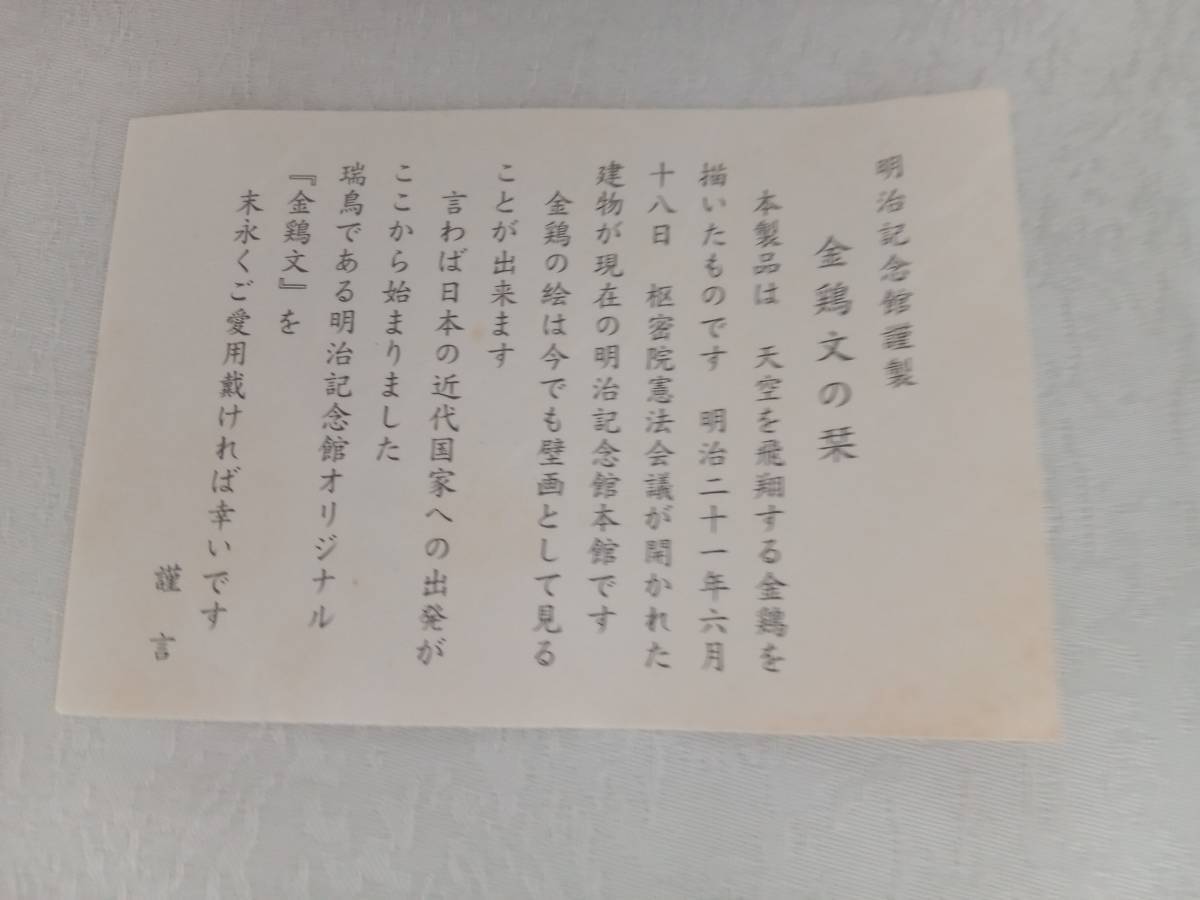 明治記念館謹製
金鶏文の栞
本製品は　天空を飛翔する金鶏を
描いたものです　明治二十一年六月
十八日　枢密院憲法会議が開かれた
建物が現在の明治記念館本館です
金鶏の絵は今でも壁画として見る
ことが出来ます
言わば日本の近代国家への出発が
ここから始まりました
瑞鳥である明治記念館オリジナル
『金鶏文』を
末永くご愛用戴ければ幸いです
謹言